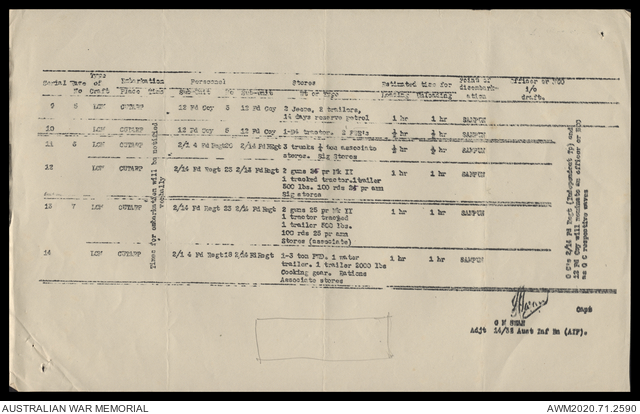 Serial Wave No Type of Craft Embarkation Place Time Personnel Sub-Unit No Sub-unit Stores Wt or Type Estimated time for Loading Unloading Point of disembark-ation Officer or NCO i/c draft.
9 6 LCM CUTARP 12 Fd Coy 5 12 Fd Coy 2 Jeeps, 2 trailers, 1 hr 1 hr SAMPUN
14 days reserve petrol
10 LCM CUTARP 12 Fd Coy 5 12 Fd Coy 1-D4 tractor. ½ hr ½ hr SAMPUN
11 6 LCM CUTARP 2/14 Fd Regt 20 2/14 Fd Regt 3 trucks ¼ ton associate ½ hr ½ hr SAMPUN
stores. Sig Stores
12 LCM CUTARP 2/14 Fd Regt 23 2/14 Fd Regt 2 guns 25 pr Mk II 1 hr 1 hr SAMPUN
1 tracked tractor.1trailer
500 lbs. 100 rds 25 pr amn
Sig stores
13 7 LCM CUTARP 2/14 Fd Regt 23 2/14 Fd Regt 2 guns 25 pr Mk II 1 hr 1 hr SAMPUN
1 tractor tracked
1 trailer 500 lbs.
100 rds 25 pr amn
Stores (associate)
14 LCM CUTARP 2/14 Fd Regt 18 2/14 Fd Regt 1-3 ton 1 water 1 hr 1 hr SAMPUN
trailer. 1 trailer 2000 lbs
Cooking gear. Rations
Associate stores
Times for embarkation will be notified
verbally
O C's 2/14 Fd Regt (Independent Tp) and
12 Fd Coy will nominate an officer or NCO
as O C respective waves
Capt
Adjt 14/32 Aust Inf Bn (AIF).
AUSTRALIAN WAR MEMORIAL
AWM2020.71.2590